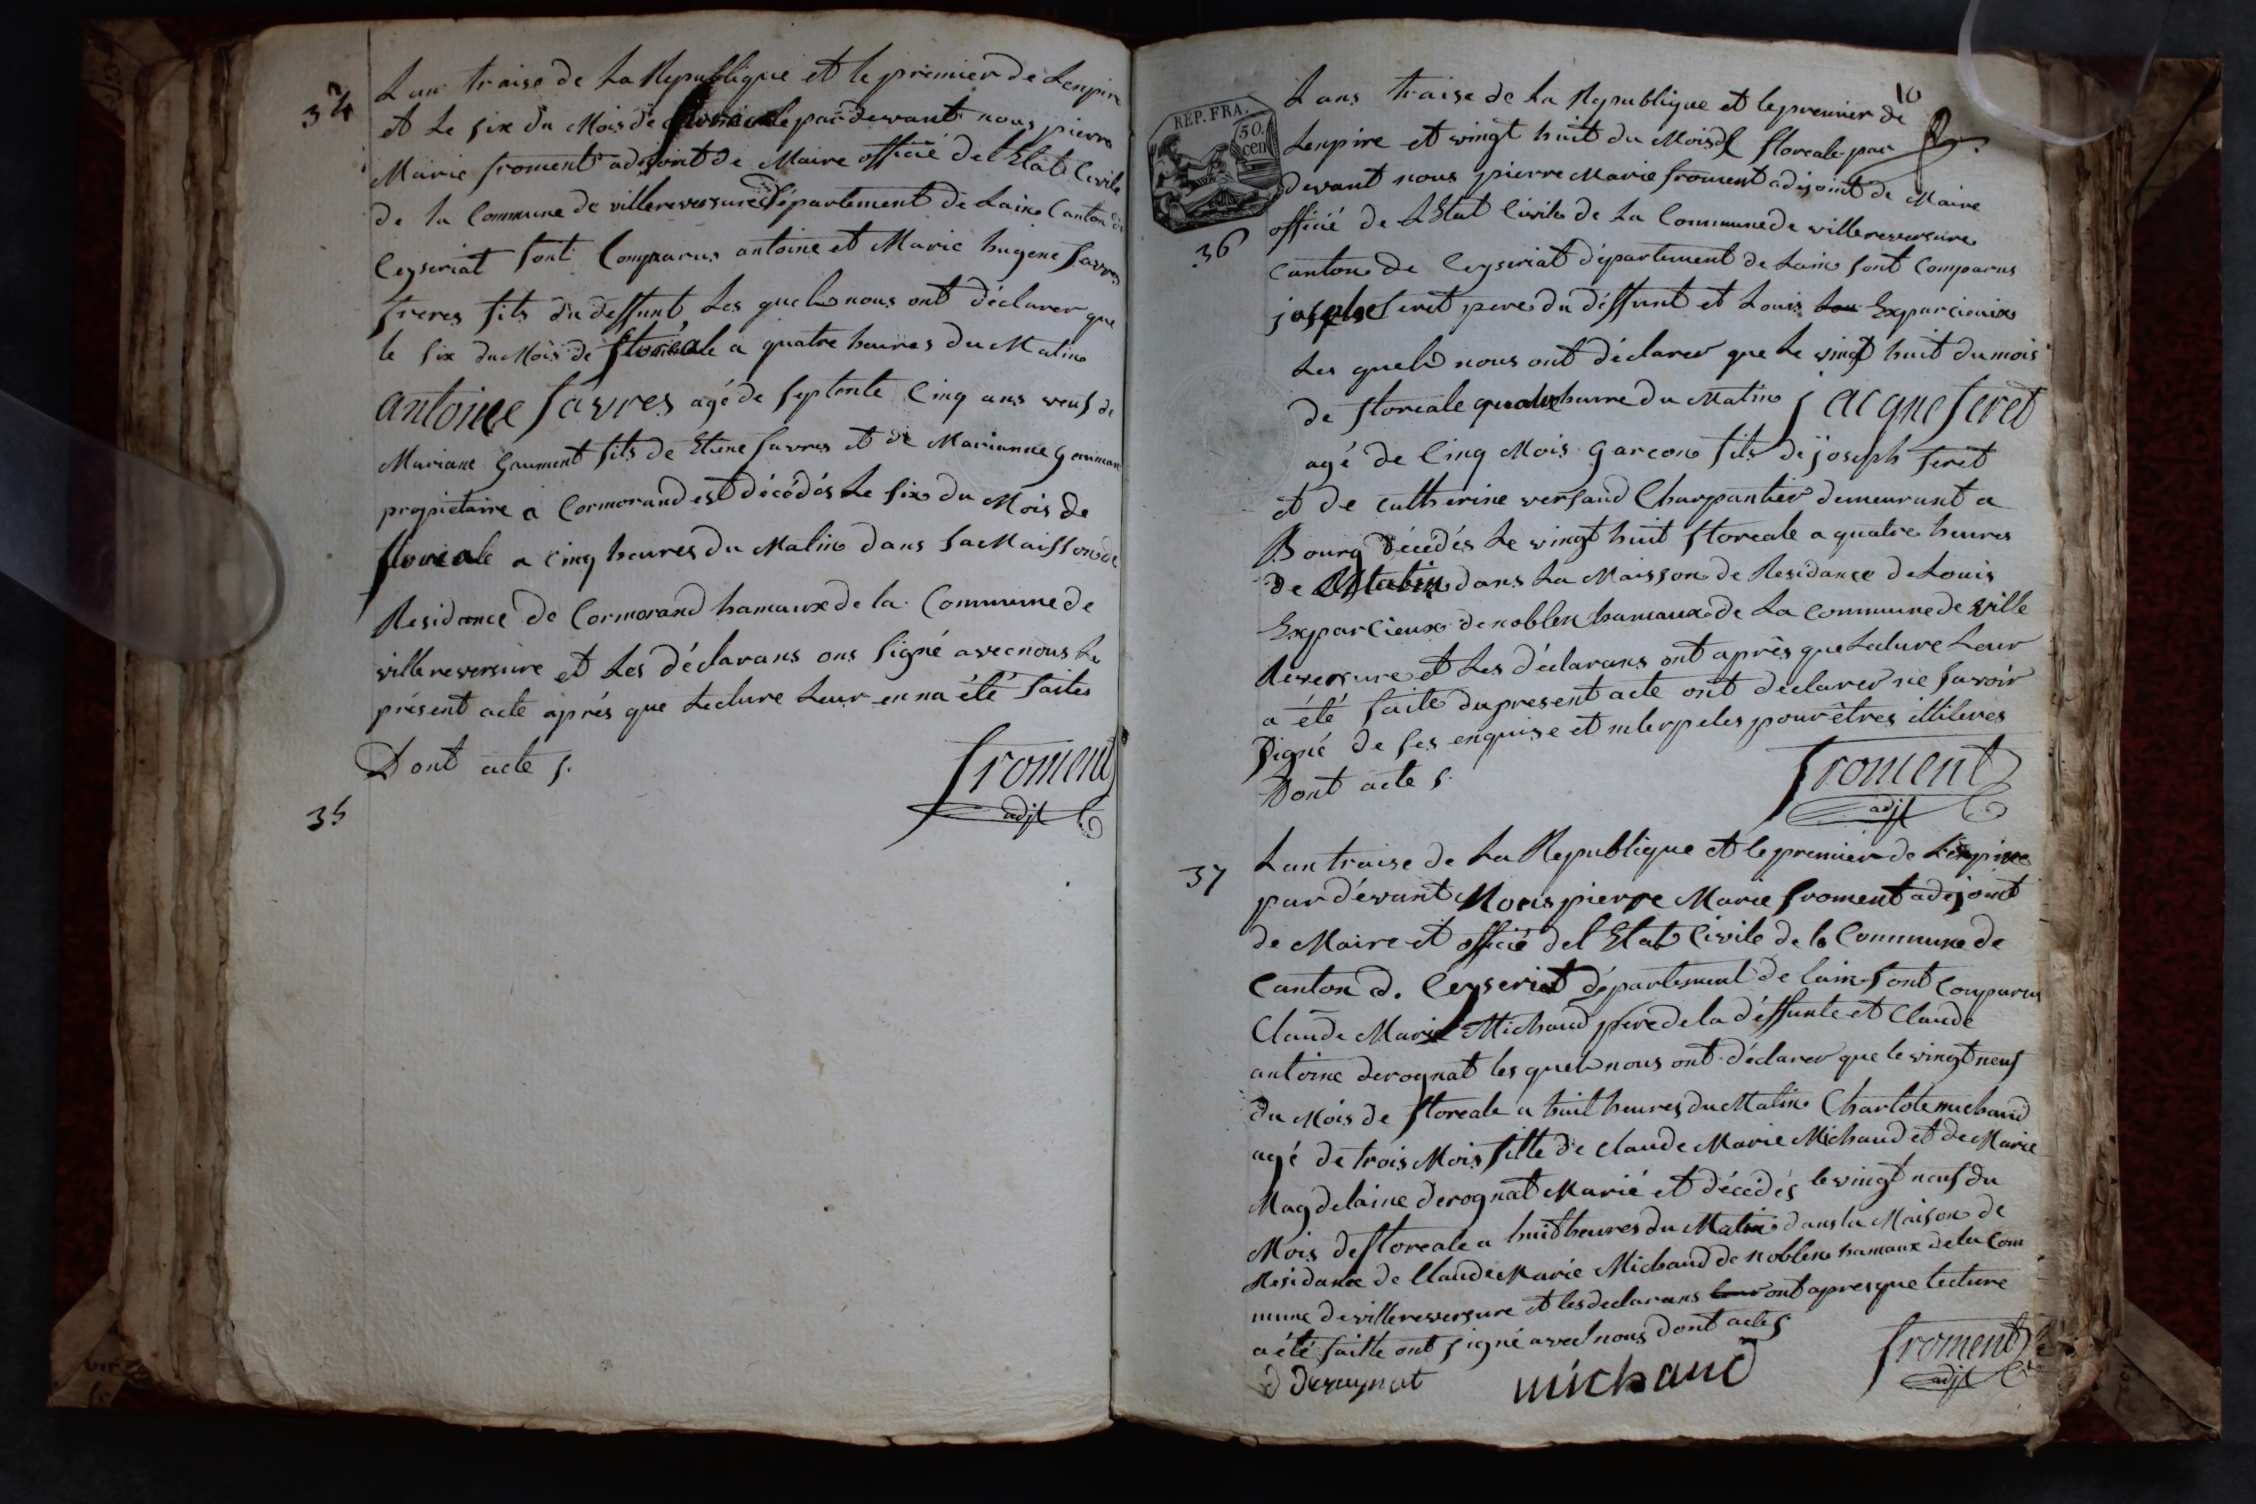 34
Lan traise de La Republique et le premier de Lenpire
et Le six du Mois de floreale par devant nous pierre
Marie froment adjoint de Maire officié de l'Etat Civile
de la Commune de villereversure Département de Lain Canton de
Ceyseriat sont Comparus antoine et Marie hugene favres
freres fils du deffunt Les quels nous ont déclarer que
le six du Mois de floréale a quatre heures du Matin
antoine favres agé de septente Cinq ans veuf de
Mariane Gaument fils de Etiene favres et de Marianne
propietaire a Cormorand est décédés Le six du Mois de
floreale a Cinq heures du Matin dans sa Maisson de
Residance de Cormorand hamaux de la Commune de
villereversure et Les déclarans ons signé avec nous Le
présent acte aprés que Lecture Leur en na été faites
Dont acte s.
froment
adjt
35
10
REP. FRA.
50.
cen
36
Lans traise de La Republique et le premier de
Lenpire et vingt huit du Mois de floreale par
devant nous pierre Marie froment adjoint de Maire
officié de L Etat Civile de La Commune de villereversure
Canton de Ceyseriat département de Lain sont Comparus
joseph feret pere du déffunt et Louis Exparcieuix
Les quels nous ont déclarer que Le vingt huit du mois
de floreale quatre hurre du Matin jacque feret
agé de Cinq Mois garcon fils de joseph feret
et de Catherine versaud Charpantier demeurant a
Bourg décédés Le vingt huit floreale a quatre heures
de Matin dans La Maisson de Residance de Louis
Exparcieux de noblen hamaux de La Commune de ville
Reversure et Les déclarans ont aprês que Lecture Leur
a été faite du present acte ont déclarer ne savoir
signé de ses enquise et interpeles pour êtres illiteres
Dont acte s.
froment
adjt
37
Lan traise de La Republique et le premier de Lenpire
par dévant Nous pierre Marie froment adjoint
de Maire et officié de l Etat Civile de la Commune de
Canton d. Ceyseriat département de lain sont Comparus
Claude Marie Michaud pere de la déffunte et Claude
antoine derognat les quels nous ont déclarer que le vingt neuf
du Mois de floreale a huit heures du Matin Charlote michaud
agé de trois Mois fille de claude Marie Michaud et de Marie
Magdelaine derognat Marié et décédés le vingt neuf du
Mois de floreale a huit heures du Matin dans la Maison de
Residance de Claude Marie Michaud de noblen hamaux de la Com
mune de villereversure et les declarans ont apres que lecture
a été faitte ont signé avec nous Dont acte s
derognat michaud froment
adjt